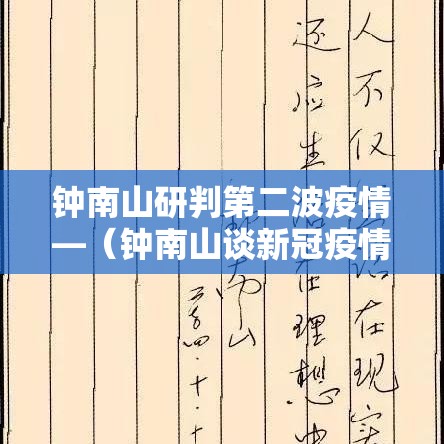 钟南山研判第二波疫情
—（钟南山谈新冠疫情
人不仅在现实
还应生在理想
山